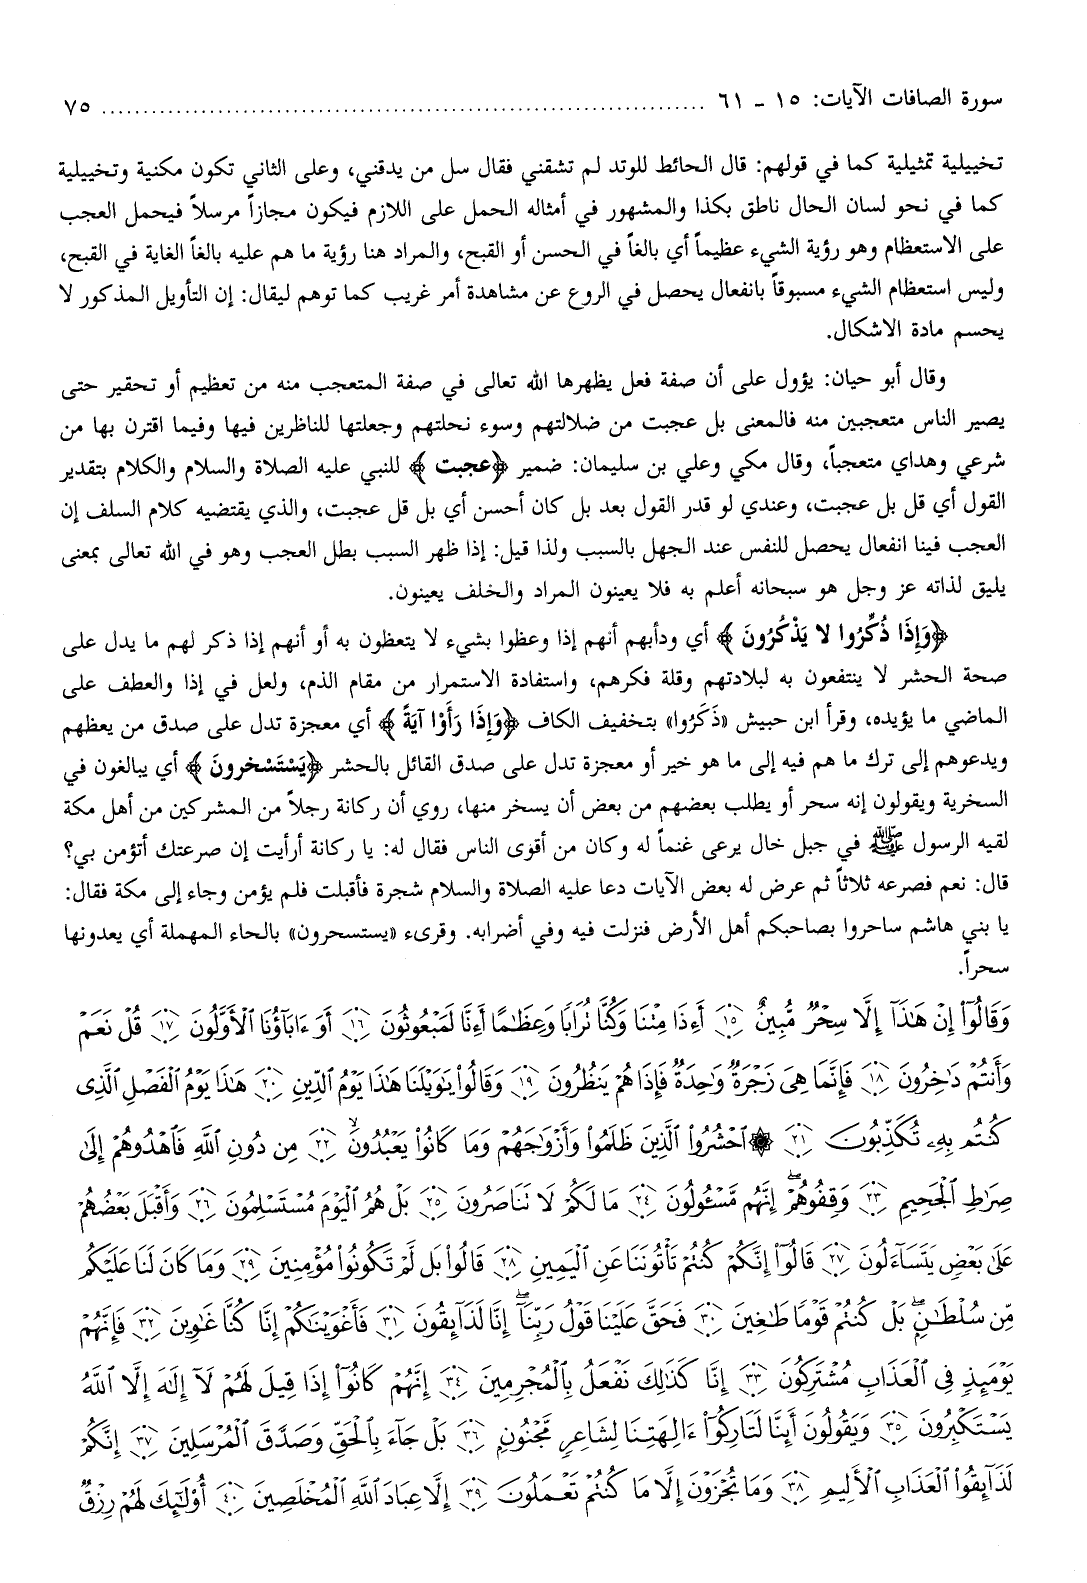 سورة الصافات الآيات: ١٥ - ٦١ ........................................ ٧٥
تخييلية تمثيلية كما في قولهم: قال الحائط للوتد لم تشقني فقال سل من يدقني، وعلى الثاني تكون مكنية وتخييلية
كما في نحو لسان الحال ناطق بكذا والمشهور في أمثاله الحمل على اللازم فيكون مجازاً مرسلاً فيحمل العجب
على الاستعظام وهو رؤية الشيء عظيماً أي بالغاً في الحسن أو القبح، والمراد هنا رؤية ما هم عليه بالغاً الغاية في القبح،
وليس استعظام الشيء مسبوقاً بانفعال يحصل في الروع عن مشاهدة أمر غريب كما توهم ليقال: إن التأويل المذكور لا
يحسم مادة الاشكال.
وقال أبو حيان: يؤول على أن صفة فعل يظهرها الله تعالى في صفة المتعجب منه من تعظيم أو تحقير حتى
يصير الناس متعجبين منه فالمعنى بل عجبت من ضلالتهم وسوء نحلتهم وجعلتها للناظرين فيها وفيما اقترن بها من
شرعي وهداي متعجباً، وقال مكي وعلي بن سليمان: ضمير ﴿عجبت﴾ للنبي عليه الصلاة والسلام والكلام بتقدير
القول أي قل بل عجبت، وعندي لو قدر القول بعد بل كان أحسن أي بل قل عجبت، والذي يقتضيه كلام السلف إن
العجب فينا انفعال يحصل للنفس عند الجهل بالسبب ولذا قيل: إذا ظهر السبب بطل العجب وهو في الله تعالى بمعنى
يليق لذاته عز وجل هو سبحانه أعلم به فلا يعينون المراد والخلف يعينون.
﴿وَإِذَا ذُكِّرُوا لا يَذْكُرُونَ﴾ أي ودأبهم أنهم إذا وعظوا بشيء لا يتعظون به أو أنهم إذا ذكر لهم ما يدل على
صحة الحشر لا ينتفعون به لبلادتهم وقلة فكرهم، واستفادة الاستمرار من مقام الذم، ولعل في إذا والعطف على
الماضي ما يؤيده، وقرأ ابن حبيش «ذَكَرُوا» بتخفيف الكاف ﴿وَإِذَا رَأَوْا آيَةً﴾ أي معجزة تدل على صدق من يعظهم
ويدعوهم إلى ترك ما هم فيه إلى ما هو خير أو معجزة تدل على صدق القائل بالحشر ﴿يَسْتَسْخرونَ﴾ أي يبالغون في
السخرية ويقولون إنه سحر أو يطلب بعضهم من بعض أن يسخر منها، روي أن ركانة رجلاً من المشركين من أهل مكة
لقيه الرسول ﷺ في جبل خال يرعى غنماً له وكان من أقوى الناس فقال له: يا ركانة أرأيت إن صرعتك أتؤمن بي؟
قال: نعم فصرعه ثلاثاً ثم عرض له بعض الآيات دعا عليه الصلاة والسلام شجرة فأقبلت فلم يؤمن وجاء إلى مكة فقال:
يا بني هاشم ساحروا بصاحبكم أهل الأرض فنزلت فيه وفي أضرابه. وقرىء «يستسحرون» بالحاء المهملة أي يعدونها
سحراً.
وَقَالُوٓا۟ إِنْ هَٰذَآ إِلَّا سِحْرٌ مُّبِينٌ ١٥ أَءِذَا مِتْنَا وَكُنَّا تُرَابًا وَعِظَٰمًا أَءِنَّا لَمَبْعُوثُونَ ١٦ أَوَ ءَابَآؤُنَا ٱلْأَوَّلُونَ ١٧ قُلْ نَعَمْ
وَأَنتُمْ دَٰخِرُونَ ١٨ فَإِنَّمَا هِىَ زَجْرَةٌ وَٰحِدَةٌ فَإِذَا هُمْ يَنظُرُونَ ١٩ وَقَالُوا۟ يَٰوَيْلَنَا هَٰذَا يَوْمُ ٱلدِّينِ ٢٠ هَٰذَا يَوْمُ ٱلْفَصْلِ ٱلَّذِى
كُنتُم بِهِۦ تُكَذِّبُونَ ٢١ ۞ ٱحْشُرُوا۟ ٱلَّذِينَ ظَلَمُوا۟ وَأَزْوَٰجَهُمْ وَمَا كَانُوا۟ يَعْبُدُونَۙ ٢٢ مِن دُونِ ٱللَّهِ فَٱهْدُوهُمْ إِلَىٰ
صِرَٰطِ ٱلْجَحِيمِ ٢٣ وَقِفُوهُمْۖ إِنَّهُم مَّسْـُٔولُونَ ٢٤ مَا لَكُمْ لَا تَنَاصَرُونَ ٢٥ بَلْ هُمُ ٱلْيَوْمَ مُسْتَسْلِمُونَ ٢٦ وَأَقْبَلَ بَعْضُهُمْ
عَلَىٰ بَعْضٍ يَتَسَآءَلُونَ ٢٧ قَالُوٓا۟ إِنَّكُمْ كُنتُمْ تَأْتُونَنَا عَنِ ٱلْيَمِينِ ٢٨ قَالُوا۟ بَل لَّمْ تَكُونُوا۟ مُؤْمِنِينَ ٢٩ وَمَا كَانَ لَنَا عَلَيْكُم
مِّن سُلْطَٰنٍۖ بَلْ كُنتُمْ قَوْمًا طَٰغِينَ ٣٠ فَحَقَّ عَلَيْنَا قَوْلُ رَبِّنَآۖ إِنَّا لَذَآئِقُونَ ٣١ فَأَغْوَيْنَٰكُمْ إِنَّا كُنَّا غَٰوِينَ ٣٢ فَإِنَّهُمْ
يَوْمَئِذٍ فِى ٱلْعَذَابِ مُشْتَرِكُونَ ٣٣ إِنَّا كَذَٰلِكَ نَفْعَلُ بِٱلْمُجْرِمِينَ ٣٤ إِنَّهُمْ كَانُوٓا۟ إِذَا قِيلَ لَهُمْ لَآ إِلَٰهَ إِلَّا ٱللَّهُ
يَسْتَكْبِرُونَ ٣٥ وَيَقُولُونَ أَئِنَّا لَتَارِكُوٓا۟ ءَالِهَتِنَا لِشَاعِرٍ مَّجْنُونٍۭ ٣٦ بَلْ جَآءَ بِٱلْحَقِّ وَصَدَّقَ ٱلْمُرْسَلِينَ ٣٧ إِنَّكُمْ
لَذَآئِقُوا۟ ٱلْعَذَابِ ٱلْأَلِيمِ ٣٨ وَمَا تُجْزَوْنَ إِلَّا مَا كُنتُمْ تَعْمَلُونَ ٣٩ إِلَّا عِبَادَ ٱللَّهِ ٱلْمُخْلَصِينَ ٤٠ أُو۟لَٰٓئِكَ لَهُمْ رِزْقٌ